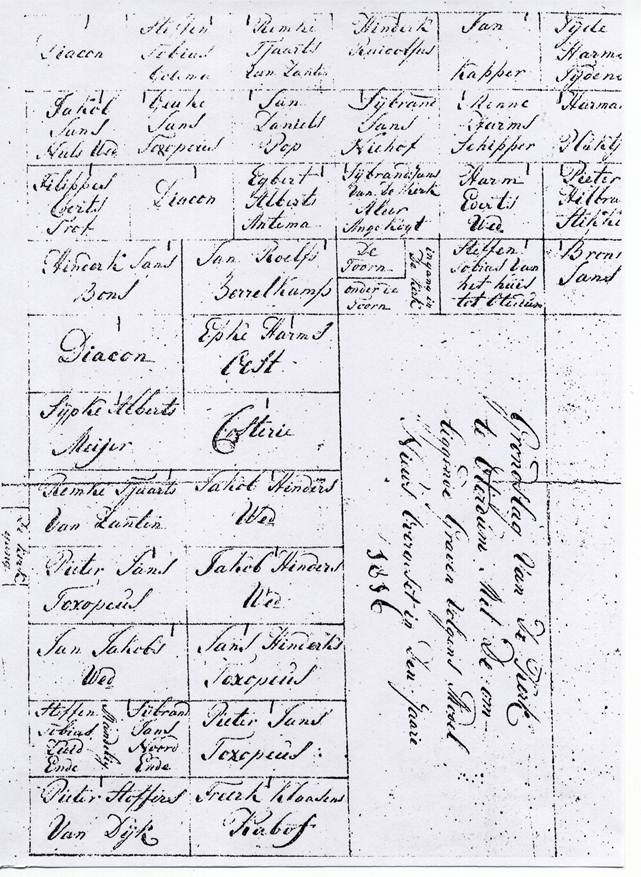 Diacon
Steffen
Tobias
Eelema
Remke
Tjaarts
van Zanten
Hinderk
Ruicolfus
Jan
Kapper
Tijde
Harm
Tijdene
Jakob
Jans
Nuis Wed
Jans
Toxopeus
Jan
Daniels
Pop
Sijbrand
Jans
Niehof
Menne
Harms
Schipper
Harma
Filippus
Everts
Trof
Diacon
Egbert
Alberts
Antema
Sijbrand Jans
Van De Kerk
Angekogt
Harm
Everts
Wed
Pieter
Hilbra
Hinderk Jans
Bons
Jan Roelfs
Borrelkamp
De
Toorn
onder de
Toorn
ingang in
De Kerk
Steffen
Tobias Van
het huis
tot Oterdum
Brons
Jans
Diacon
Epke Harms
Sijpke Alberts
Meijer
Costerie
Remke Tjaarts
Van Zanten
Jakob Hinders
Wed
De Kerk
Pieter Jans
Toxopeus
Jakob Hinders
Wed
Jan Jakobs
Wed
Jans Hinderks
Toxopeus
Steffen
Tobias
Zuid
Ende
Mandelig
Sijbrand
Jans
Noord
Ende
Pieter Jans
Toxopeus
Pieter Stoffers
Van Dijk
Freerk Klaasens
Kabof
Grondslag Van De Kerk
te Oterdum Met De om
liggende Graven volgens
Nieuws in Den Jaare
1836